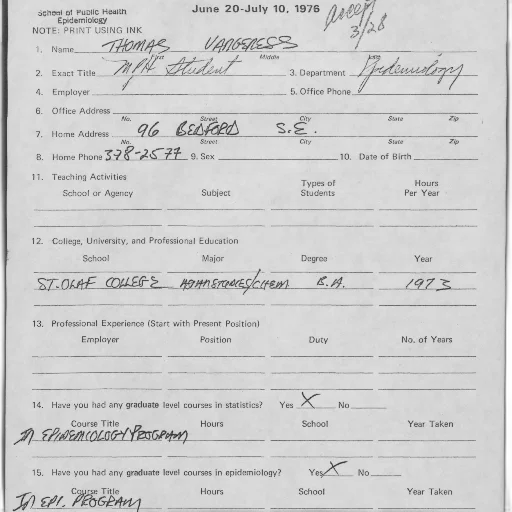 School of Public Health June 20-July 10, 1976
Epidemiology 3/28
NOTE: PRINT USING INK
1. Name THOMAS
First Middle
2. Exact Title MPH Student 3. Department Epidemiology
4. Employer 5. Office Phone
6. Office Address
No. Street City State Zip
7. Home Address 96 BEDFORD S.E.
No. Street City State Zip
8. Home Phone 378-2577 9. Sex 10. Date of Birth
11. Teaching Activities
School or Agency Subject Types of Students Hours Per Year
12. College, University, and Professional Education
School Major Degree Year
ST. OLAF COLLEGE /CHEM B.A. 1973
13. Professional Experience (Start with Present Position)
Employer Position Duty No. of Years
14. Have you had any graduate level courses in statistics? Yes X No
Course Title Hours School Year Taken
IN EPIDEMIOLOGY PROGRAM
15. Have you had any graduate level courses in epidemiology? Yes X No
Course Title Hours School Year Taken
IN EPI. PROGRAM